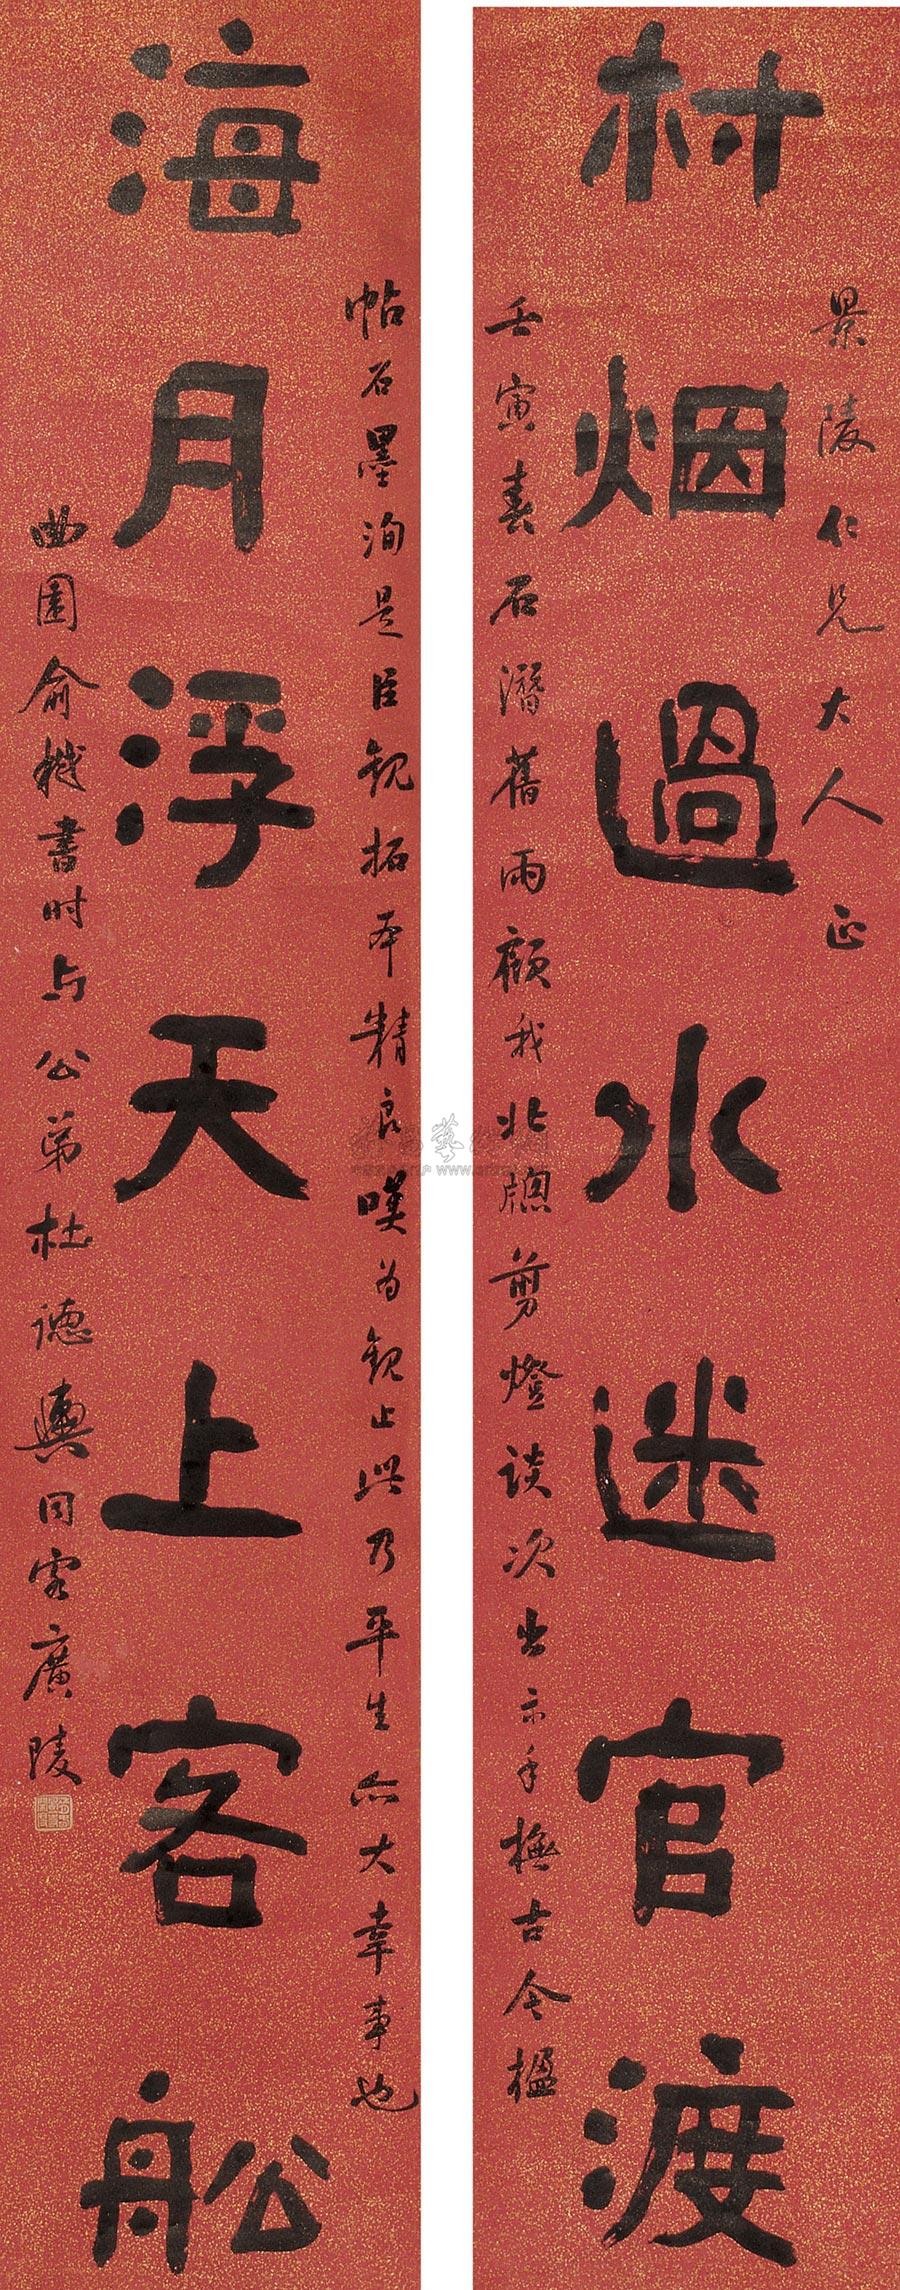 村烟過水迷官渡
景陵仁兄大人正
壬寅春石潛舊雨顧我北牕剪燈談次出示手橅古今楹
帖石墨洵是臣觀拓本精良嘆为觀止此乃平生六大幸事也
海月浮天上客舩
曲園俞樾書时与公弟杜德輿同客廣陵